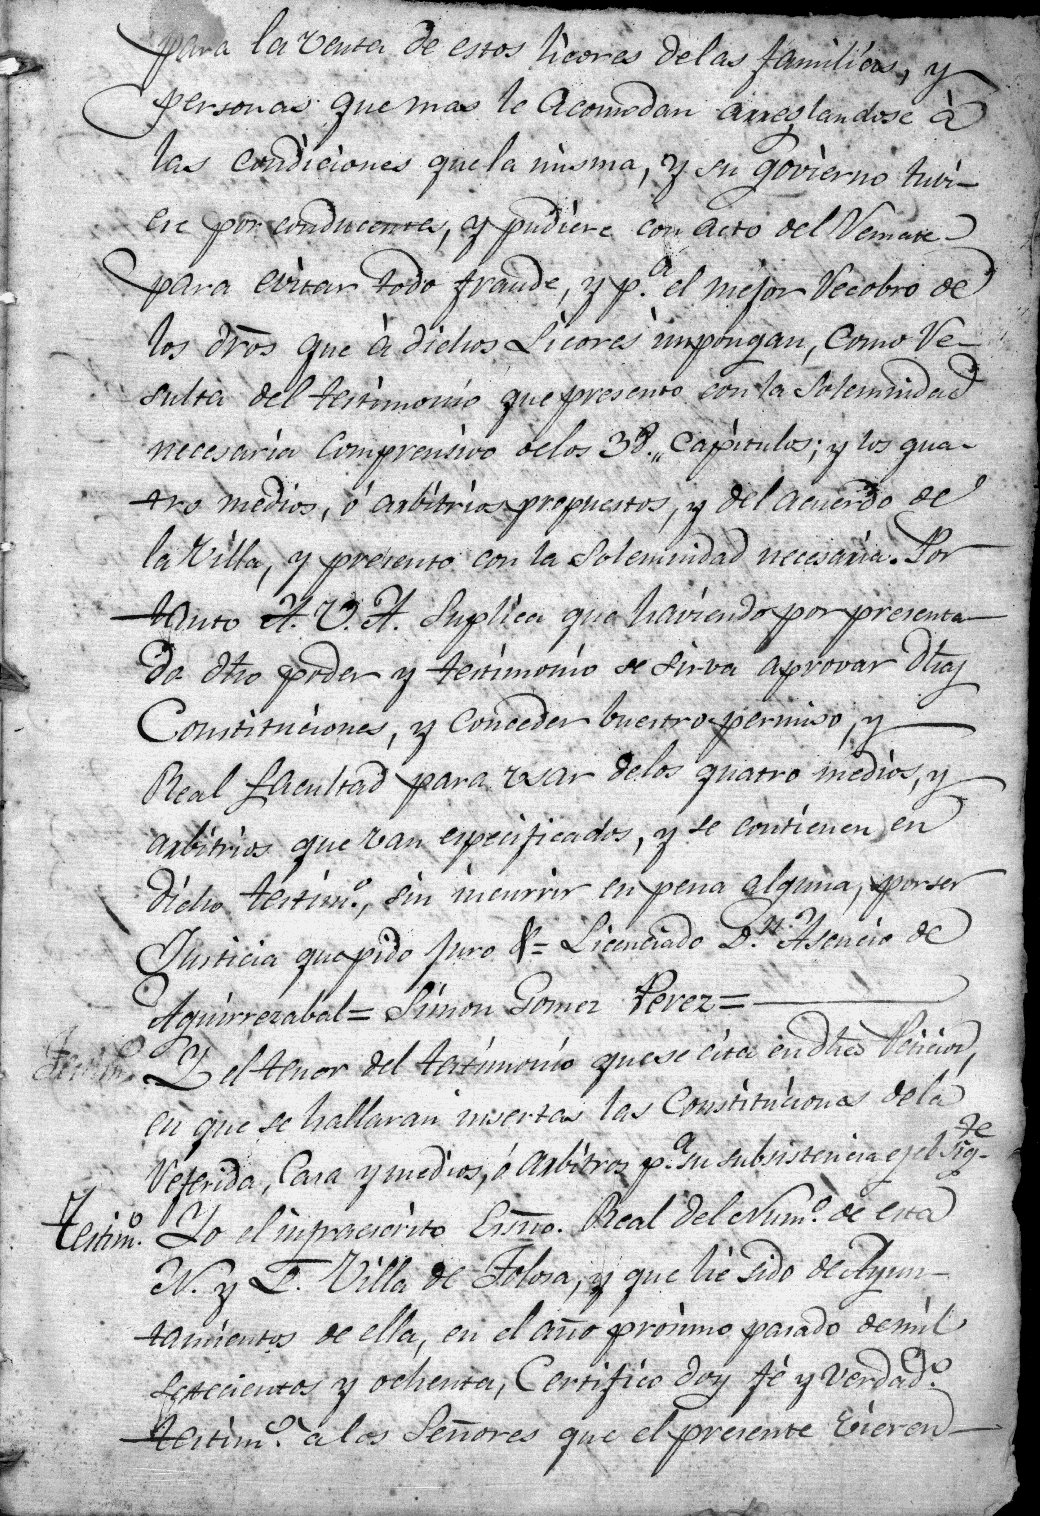 para la venta de estos licores de las familias, y
personas que mas le acomodan arreglandose à
las condiciones que la misma, y su Govierno tuvi-
ere por conducentes, y pudiere con acto del Remate
para evitar todo fraude, y p.ª el mejor Recobro de
los dr̃os que à dichos Licores impongan, como Re-
sulta del testimonio que presento con la solemnidad
necesaria comprensivo de los 38. Capitulos; y los qua-
tro medios, ó arbitrios propuestos, y del acuerdo de
la Villa, y presento con la solemnidad necesaria. Por
tanto A. V. A. Suplica que haviendo por presenta-
do dh̃o poder y testimonio se sirva aprovar dh̃as
Constituciones, y conceder buestro permiso, y
Real facultad para usar de los quatro medios, y
arbitrios que van especificados, y se contienen en
dicho testim.º, sin incurrir en pena alguna, por ser
Justicia que pido juro &= Licenciado D.n Asencio de
Aguirrezabal= Simon Gomez Perez=
Testim.º Y el tenor del testimonio que se cita en dh̃a Peticion,
en que se hallaran insertas las Constituciones de la
Referida, Casa y medios, ó arbitros p.ª su subsistencia es el sig.te
Testim.º Yo el infraescrito Essno. Real del Num.º de esta
N. y L. Villa de Tolosa, y que hé sido de Ayun-
tamientos de ella, en el año próximo pasado de mil
setecientos y ochenta, Certifico doy fé y verdad.º
testim.º à los Señores que el presente vieren